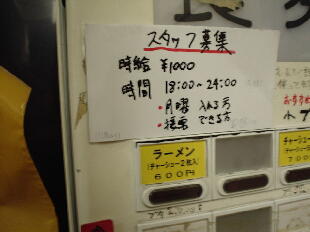 スタッフ募集
時給 ¥1000
時間 18:00~24:00
・月曜 入れる方
・接客 できる方
ラーメン
(チャーシュー2枚入)
600円
チャーシュー
700